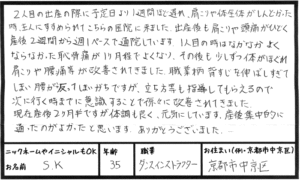 2人目の出産の際に予定日より1週間ほど遅れ、肩こりや体全体がしんどかった
時、主人にすすめられてこちらの医院に来ました。出産後も肩こりや頭痛がひどく
産後2週間から週1ペースで通院しています。1人目の時はなかなかよく
ならなかった恥骨痛が1ヶ月程でよくなり、その後も少しずつ体がほぐれ
肩こりや腰痛等が改善されてきました。職業柄背すじを伸ばしすぎて
しまい腰が反ってしまいがちですが、立ち方等も指導してもらえるので
次に行く時までに意識することで徐々に改善されてきました。
現在産後2ヶ月半ですが体調も良く、元気にしています。産後集中的に
通ったのがよかったと思います。ありがとうございました。
ニックネームやイニシャルもOK
お名前 S.K
年齢 35
職業 ダンスインストラクター
お住まい(例:京都市中京区)
京都市中京区